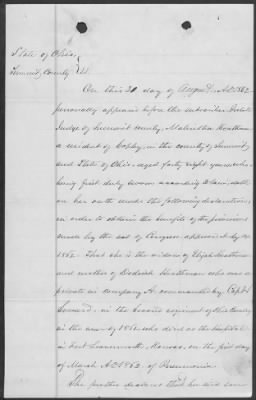 State of Ohio,
Summit County } SS.
On this 30 day of August A.D. 1862
personally appears before the subscriber Probate
Judge of Summit county, Malintha
a resident of Copley in the county of Summit
and State of Ohio, aged forty eight years, who
being first duly sworn according to law, doth
on her oath make the following declaration,
in order to obtain the benefits of the provisions
made by the act of Congress approved July 14
1862. That she is the widow of Elijah
and mother of who was a
private in company A. commanded by Capt
Leonard, in the second regiment of Ohio Cavalry
in the war of 1861 who died at the hospital
in Fort Leavenworth, Kansas, on the first day
of March A.D. 1862 of Pneumonia.
She further declares that her said son